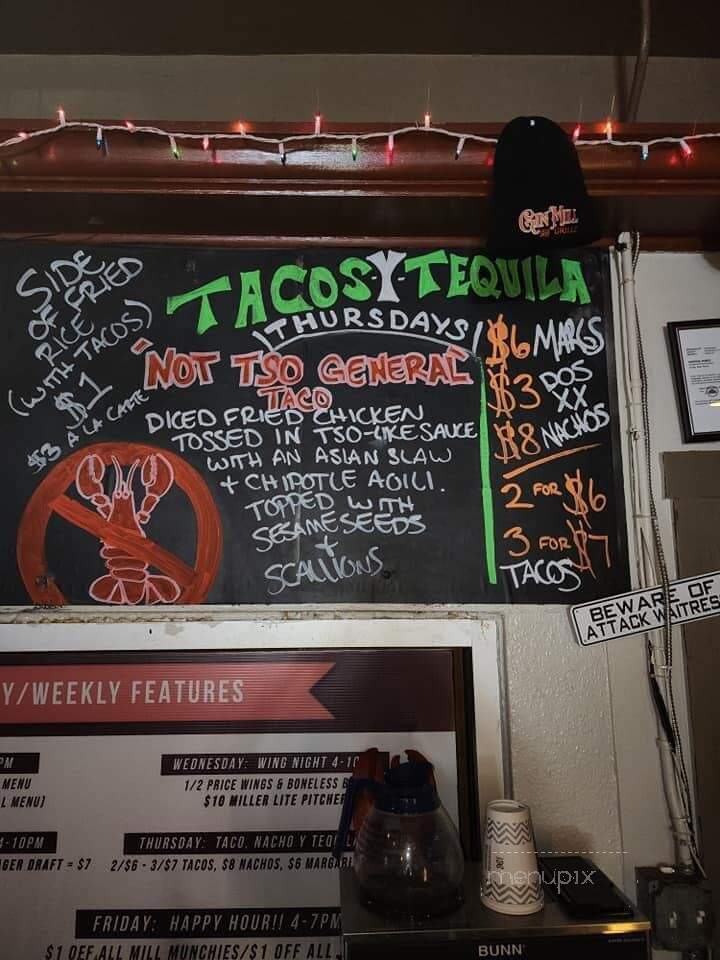 GIN MILL
& GRILLE
TACOS·Y·TEQUILA
THURSDAYS
SIDE
OF FRIED
RICE
(WITH TACOS)
$1
$3 A LA CARTE
"NOT TSO GENERAL"
TACO
DICED FRIED CHICKEN
TOSSED IN TSO-LIKE SAUCE
WITH AN ASIAN SLAW
+ CHIPOTLE AOILI.
TOPPED WITH
SESAME SEEDS
+
SCALLIONS
$6 MARGS
$3 DOS
XX
$8 NACHOS
2 FOR $6
3 FOR $7
TACOS
BEWARE OF
ATTACK WAITRESS
Y/WEEKLY FEATURES
PM
MENU
L MENU]
WEDNESDAY: WING NIGHT 4-10
1/2 PRICE WINGS & BONELESS B
$10 MILLER LITE PITCHER
4-10PM
GER DRAFT = $7
THURSDAY: TACO, NACHO Y TEQUIL
2/$6 - 3/$7 TACOS, $8 NACHOS, $6 MARGARI
FRIDAY: HAPPY HOUR!! 4-7PM
$1 OFF ALL MILL MUNCHIES/$1 OFF ALL
BUNN
menupix